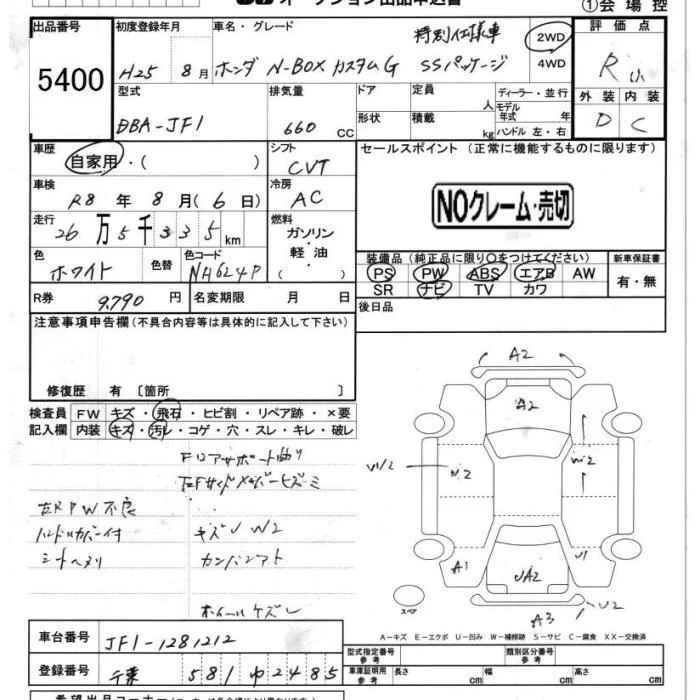 ①会場控
出品番号 5400
初度登録年月 H25 8月
車名・グレード ホンダ N-BOX カスタムG SSパッケージ
特別仕様車
2WD
4WD
評価点 R
外装 内装
D C
型式 DBA-JF1
排気量 660 CC
ドア
形状
定員 人
積載 kg
ディーラー・並行
モデル年式 年
ハンドル 左・右
車歴 自家用・( )
シフト CVT
車検 R8 年 8 月 (6 日)
冷房 AC
走行 26万5千335km
燃料 ガソリン・軽油・( )
色 ホワイト
色替
色コード NH624P
R券 9,790 円
名変期限 月 日
セールスポイント(正常に機能するものに限ります)
NOクレーム・売切
装備品(純正品に限り○をつけてください)
PS PW ABS エアB AW
SR ナビ TV カワ
新車保証書
有・無
後日品
注意事項申告欄(不具合内容等は具体的に記入して下さい)
修復歴 有〔箇所 〕
検査員記入欄
FW キズ・飛石・ヒビ割・リペア跡・×要
内装 キズ・汚レ・コゲ・穴・スレ・キレ・破レ
FロアサポートHり
左RPW不良
ハンドルカバー付
シートヘタリ
キズU W2
ホイールケズレ
A2
A2
W2
W2
W2
A1
U1
UA2
A3
U2
スペア
A-キズ E-エクボ U-凹み W-補修跡 S-サビ C-腐食 XX-交換済
車台番号 JF1-1281212
登録番号 千葉 581 ゆ 2485
型式指定番号 参考
類別区分番号 参考
車庫証明用 参考 長さ cm 幅 cm 高さ cm